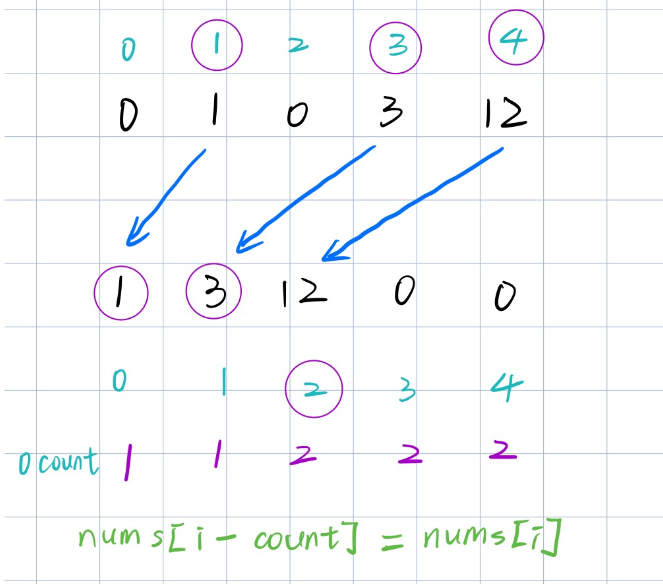 0 1 2 3 4
0 1 0 3 12
1 3 12 0 0
0 1 2 3 4
0 count 1 1 2 2 2
nums[i - count] = nums[i]